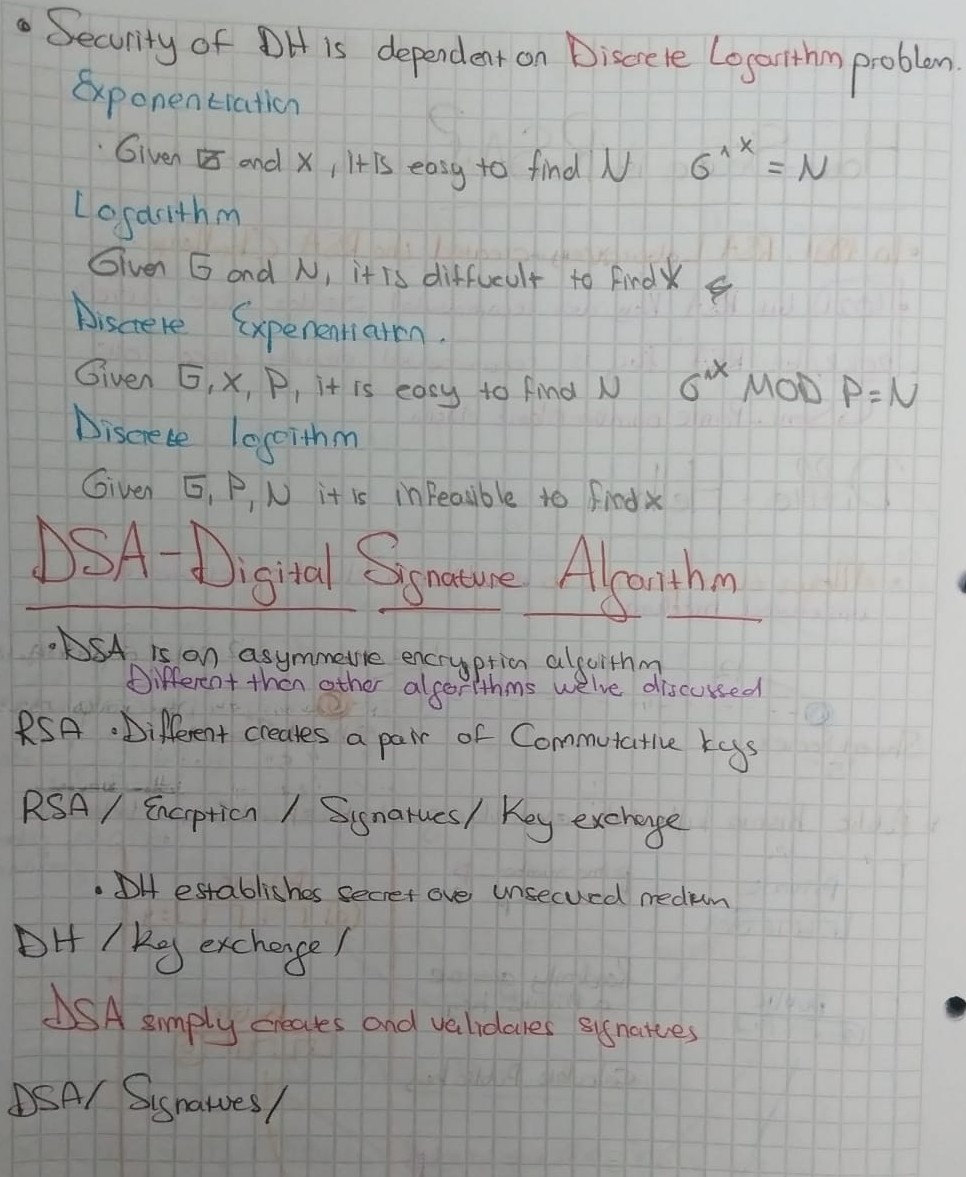 • Security of DH is dependent on Discrete Logarithm problem.
Exponentiation
· Given G and X, It is easy to find N G^X = N
Logarithm
Given G and N, it is diffucult to find X
Discrete Expenentiation.
Given G, X, P, it is easy to find N G^X MOD P = N
Discrete logoithm
Given G, P, N it is infeasible to find x
DSA - Digital Signature Algorithm
• DSA is an asymmetric encryption algorithm
Different then other algorithms we've discussed
RSA • Different creates a pair of Commutative keys
RSA / Encrption / Signatues / Key exchange
• DH establishes secret over unsecured medium
DH / Key exchange /
DSA simply creates and validates signatues
DSA / Signatues /